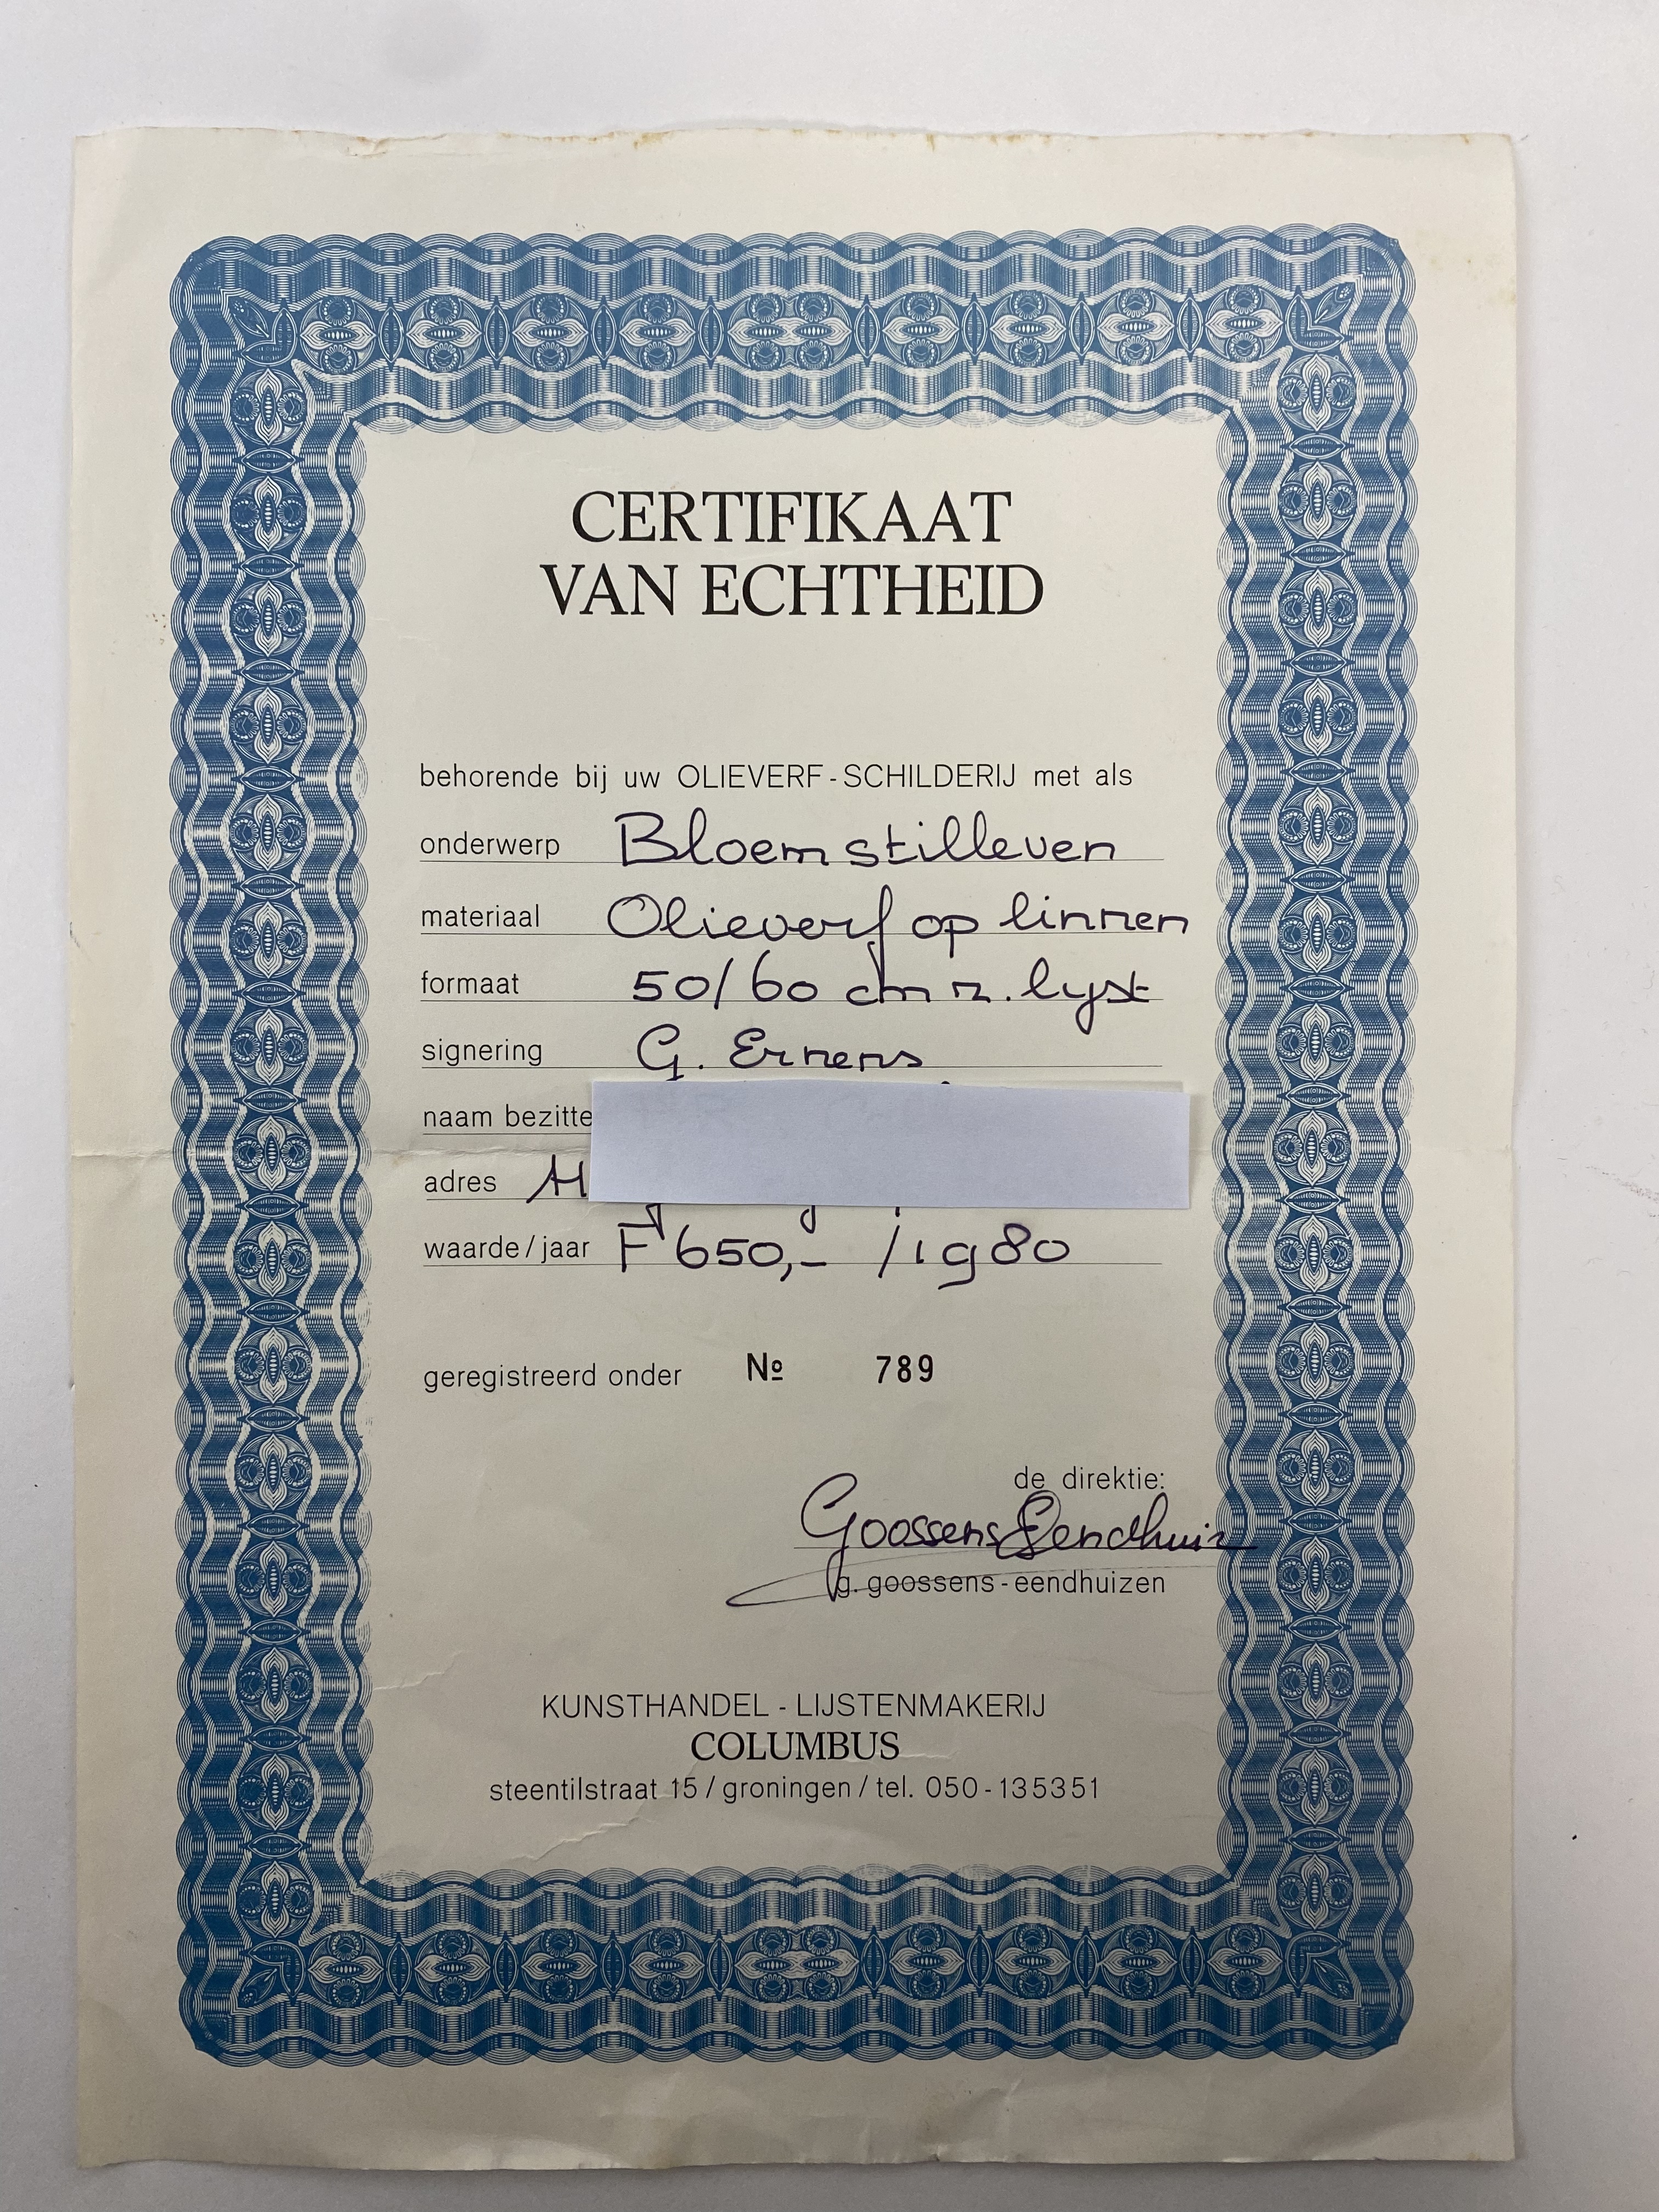 CERTIFIKAAT
VAN ECHTHEID
behorende bij uw OLIEVERF-SCHILDERIJ met als
onderwerp Bloemstilleven
materiaal Olieverf op linnen
formaat 50/60 cm z. lyst
signering G. Ernens
naam bezitte
adres H
waarde/jaar F 650,- /1980
geregistreerd onder Nº 789
de direktie:
Goossens Eendhuiz
g. goossens-eendhuizen
KUNSTHANDEL - LIJSTENMAKERIJ
COLUMBUS
steentilstraat 15 / groningen / tel. 050-135351